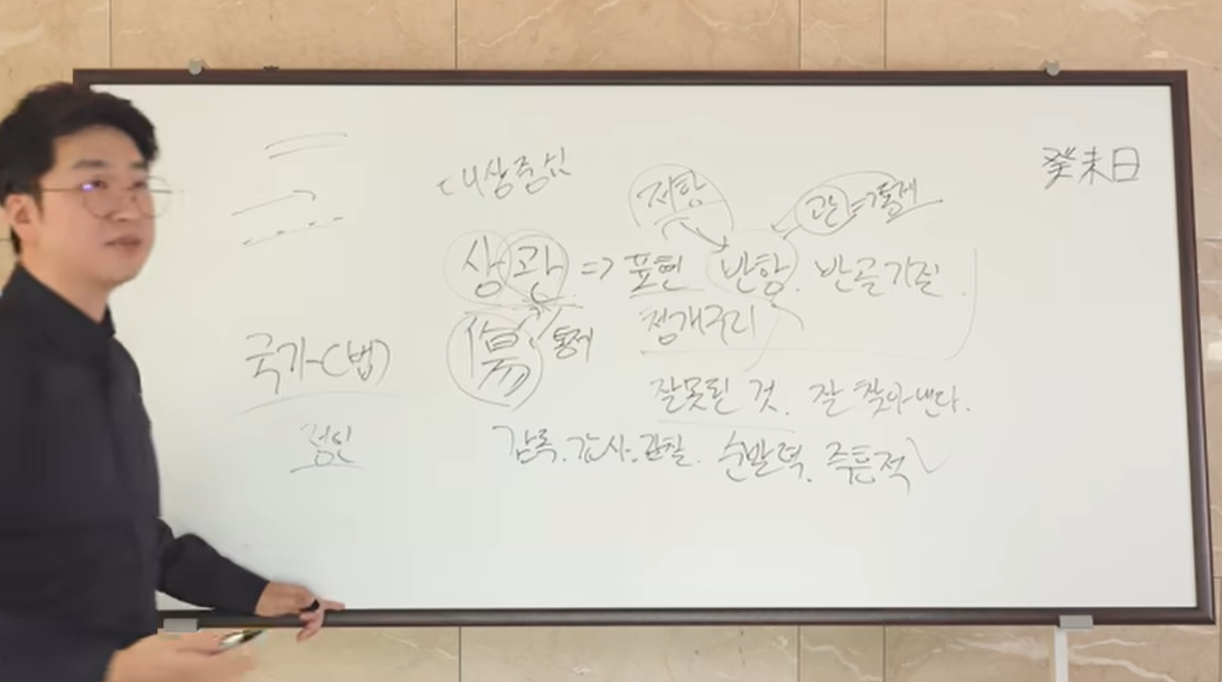 癸未日
대상중심
저항
관=통제
상관 => 표현 반항. 반골기질.
傷 통제 청개구리
국가(법)
잘못된 것. 잘 찾아낸다.
정인
감독. 감사. 관찰. 순발력. 즉흥적